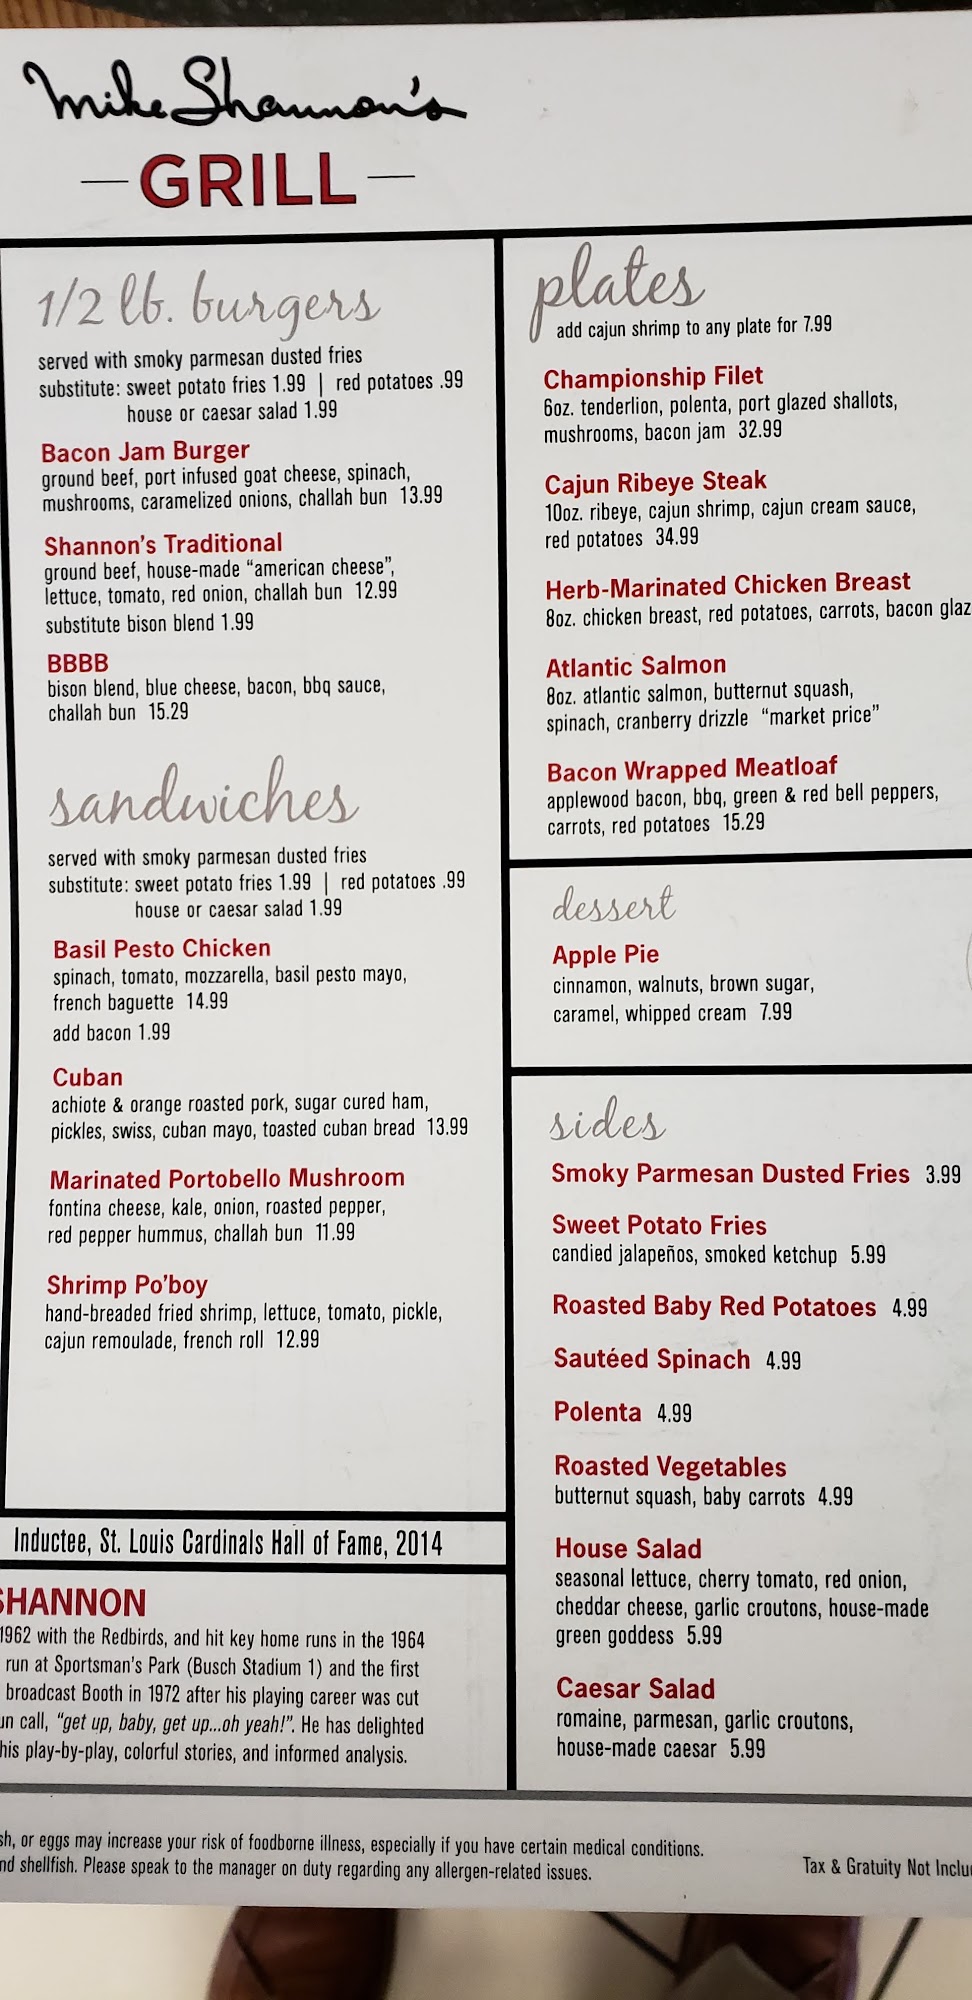 Mike Shannon's
GRILL
1/2 lb. burgers
served with smoky parmesan dusted fries
substitute: sweet potato fries 1.99 | red potatoes .99
house or caesar salad 1.99
Bacon Jam Burger
ground beef, port infused goat cheese, spinach,
mushrooms, caramelized onions, challah bun 13.99
Shannon's Traditional
ground beef, house-made "american cheese",
lettuce, tomato, red onion, challah bun 12.99
substitute bison blend 1.99
BBBB
bison blend, blue cheese, bacon, bbq sauce,
challah bun 15.29
sandwiches
served with smoky parmesan dusted fries
substitute: sweet potato fries 1.99 | red potatoes .99
house or caesar salad 1.99
Basil Pesto Chicken
spinach, tomato, mozzarella, basil pesto mayo,
french baguette 14.99
add bacon 1.99
Cuban
achiote & orange roasted pork, sugar cured ham,
pickles, swiss, cuban mayo, toasted cuban bread 13.99
Marinated Portobello Mushroom
fontina cheese, kale, onion, roasted pepper,
red pepper hummus, challah bun 11.99
Shrimp Po'boy
hand-breaded fried shrimp, lettuce, tomato, pickle,
cajun remoulade, french roll 12.99
plates
add cajun shrimp to any plate for 7.99
Championship Filet
6oz. tenderlion, polenta, port glazed shallots,
mushrooms, bacon jam 32.99
Cajun Ribeye Steak
10oz. ribeye, cajun shrimp, cajun cream sauce,
red potatoes 34.99
Herb-Marinated Chicken Breast
8oz. chicken breast, red potatoes, carrots, bacon glaz
Atlantic Salmon
8oz. atlantic salmon, butternut squash,
spinach, cranberry drizzle "market price"
Bacon Wrapped Meatloaf
applewood bacon, bbq, green & red bell peppers,
carrots, red potatoes 15.29
dessert
Apple Pie
cinnamon, walnuts, brown sugar,
caramel, whipped cream 7.99
sides
Smoky Parmesan Dusted Fries 3.99
Sweet Potato Fries
candied jalapeños, smoked ketchup 5.99
Roasted Baby Red Potatoes 4.99
Sautéed Spinach 4.99
Polenta 4.99
Roasted Vegetables
butternut squash, baby carrots 4.99
House Salad
seasonal lettuce, cherry tomato, red onion,
cheddar cheese, garlic croutons, house-made
green goddess 5.99
Caesar Salad
romaine, parmesan, garlic croutons,
house-made caesar 5.99
Inductee, St. Louis Cardinals Hall of Fame, 2014
SHANNON
1962 with the Redbirds, and hit key home runs in the 1964
run at Sportsman's Park (Busch Stadium 1) and the first
broadcast Booth in 1972 after his playing career was cut
un call, "get up, baby, get up...oh yeah!". He has delighted
his play-by-play, colorful stories, and informed analysis.
sh, or eggs may increase your risk of foodborne illness, especially if you have certain medical conditions.
nd shellfish. Please speak to the manager on duty regarding any allergen-related issues.
Tax & Gratuity Not Inclu